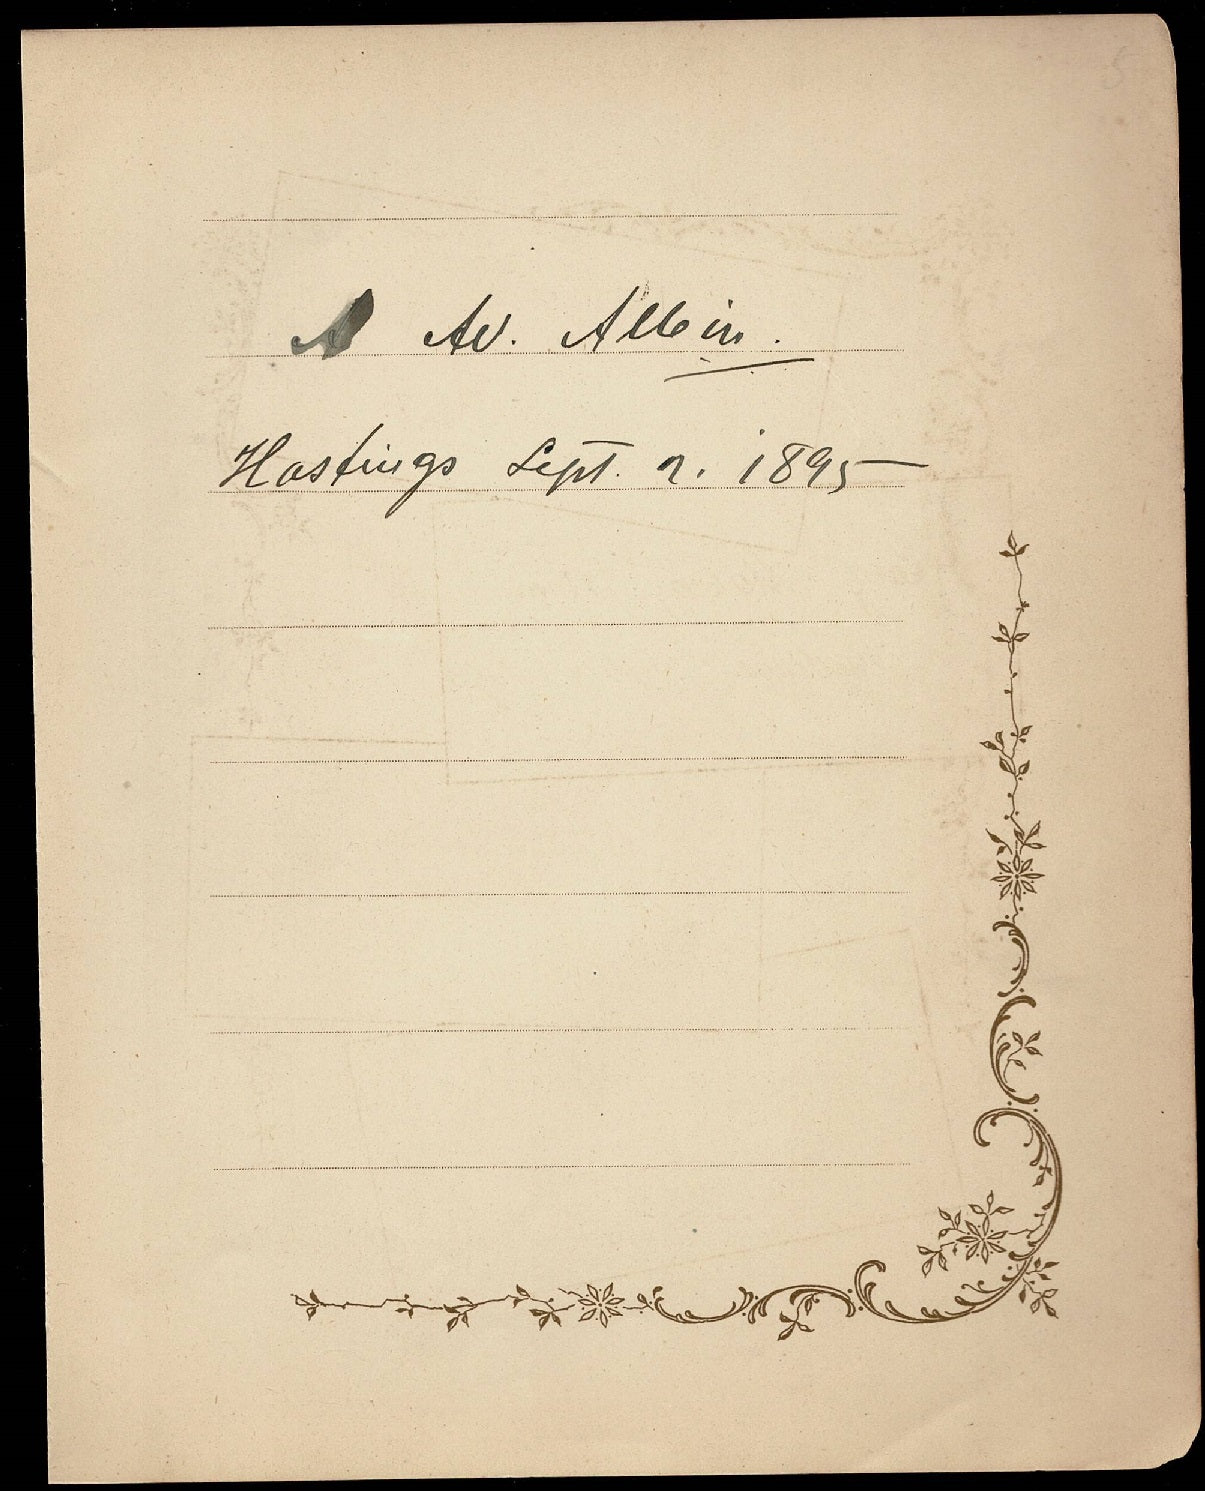 5
A Ad. Albin.
Hastings Sept. 2. 1895